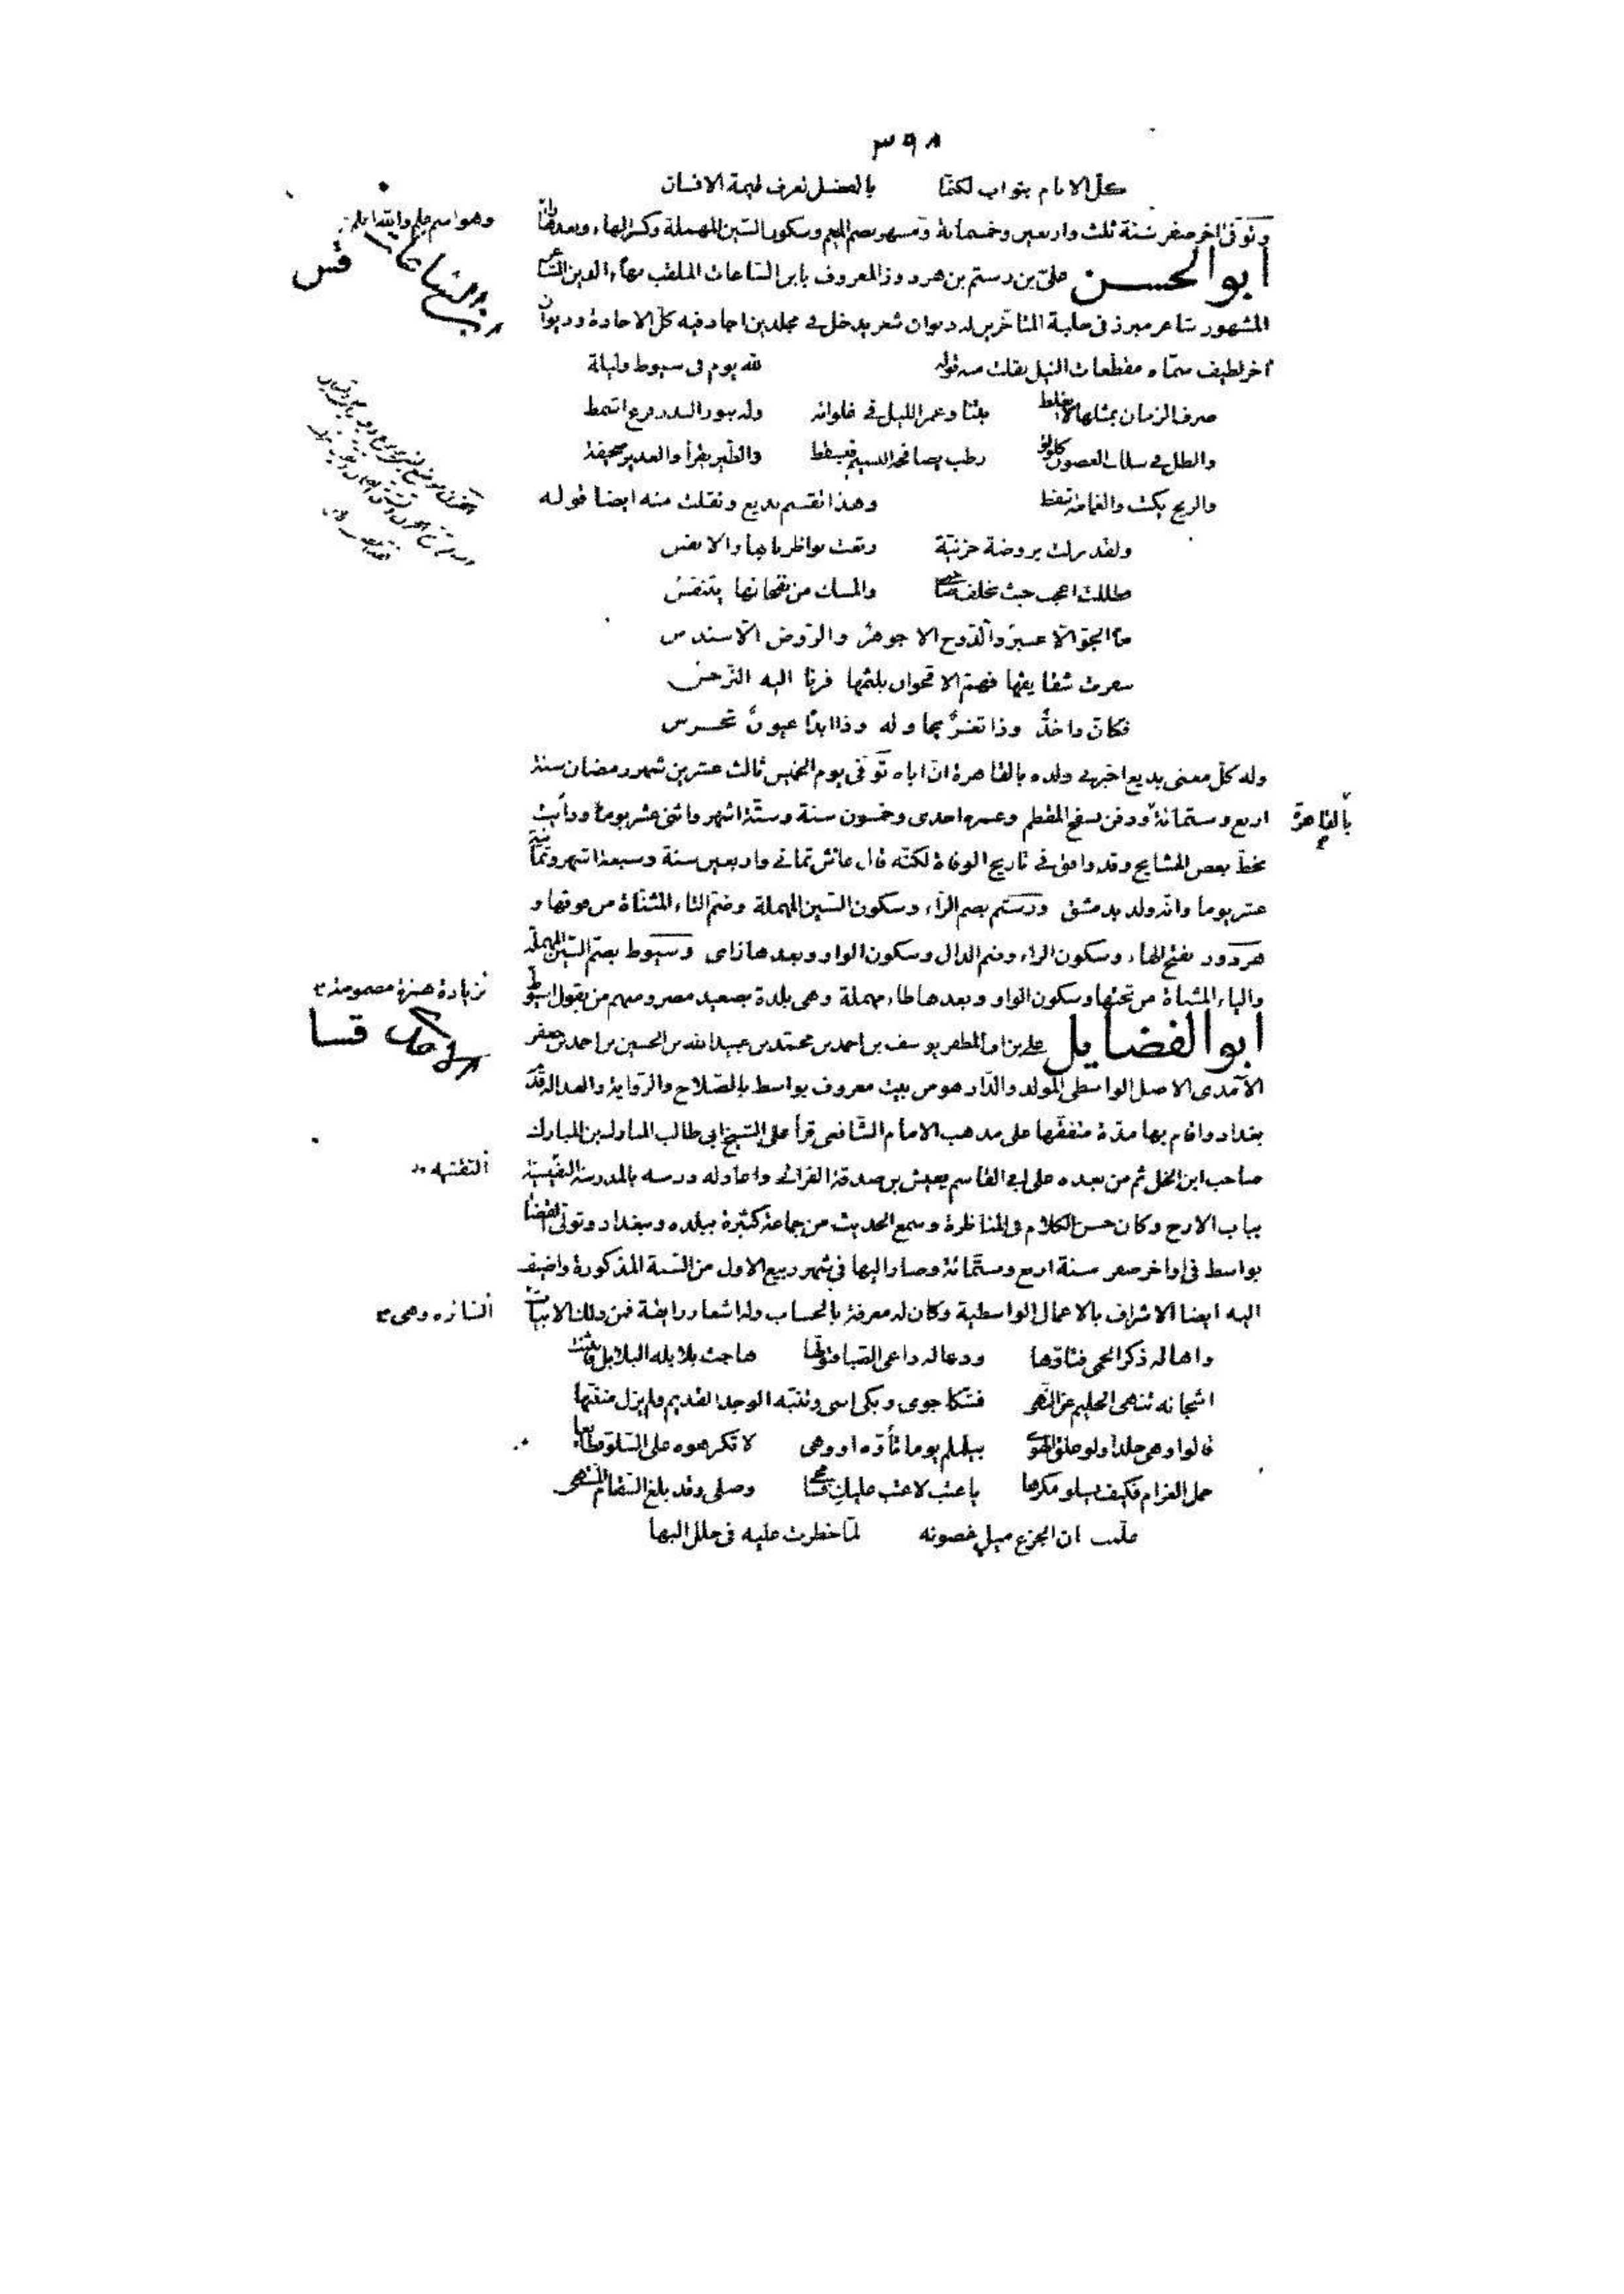 ٣٩٨
كل الانام بنو اب لكنما بالفضل تعرف قيمة الانسان
وتوفى اخر صفر سنة ثلث واربعين وخمسمائة ومسهر بضم الميم وسكون السين المهملة وكسر الهاء وبعدها راء
وهو اسم علم والله اعلم
ابو الحسن على بن رستم بن هردوز المعروف بابن الساعات الملقب بهاء الدين الشاعر
ابن الساعات
المشهور شاعر مبرز فى حلبة المتاخرين له ديوان شعر يدخل فى مجلدين اجاد فيه كل الاجادة وديوان
اخر لطيف سماه مقطعات النيل نقلت منه قوله لله يوم فى سيوط وليلة
صرف الزمان بمثلها لا يغلط بتنا وعمر الليل فى غلوائه وله بنور البدر فرع اشمط
والطل فى سلك الغصون كلؤلؤ رطب يصافحه النسيم فيسقط والطير يقرأ والغدير صحيفة
والريح يكتب والغمامة تنقط وهذا تقسيم بديع ونقلت منه ايضا قوله
ولقد نزلت بروضة حزنية رتعت نواظرنا بها والانفس
فظللت اعجب حيث يحلف والمسك من نفحاتها يتنفس
ما الجو الا عنبر والدوح الا جوهر والروض الا سندس
سفرت شقايقها فهم الاقحوان بلثمها فرنا اليه النرجس
فكان ذا خد وذا ثغر يحاوله وذا ابدا عيون تحرس
وله كل معنى بديع اخبرنى ولده بالقاهرة ان اباه توفى يوم الخميس ثالث عشرين شهر رمضان سنة
اربع وستمائة ودفن بسفح المقطم وعمره احدى وخمسون سنة وستة اشهر واثنى عشر يوما ورأيت
بالقاهرة
بخط بعض المشايخ وقد وافق فى تاريخ الوفاة لكنه قال عاش ثمانى واربعين سنة وسبعة اشهر وثمانية
عشر يوما وانه ولد بدمشق ورستم بضم الراء وسكون السين المهملة وضم التاء المثناة من فوقها و
هردوز بفتح الهاء وسكون الراء وضم الدال وسكون الواو وبعدها زاى وسيوط بضم السين المهملة
والياء المثناة من تحتها وسكون الواو وبعدها طاء مهملة وهى بلدة بصعيد مصر ومنهم من يقول اسيوط
بزيادة همزة مضمومة
ابو الفضايل على بن ابى المظفر يوسف بن احمد بن محمد بن عبيد الله بن الحسين بن احمد بن جعفر
الآمدى الاصل الواسطى المولد والدار هو من بيت معروف بواسط بالصلاح والرواية والعدالة قدم
بغداد واقام بها مدة متفقها على مذهب الامام الشافعى قرأ على الشيخ ابى طالب المبارك بن المبارك
صاحب ابن الخل ثم من بعده على ابى القاسم يعيش بن صدقة الفراتى واعاد له درسه بالمدرسة الثقتية
الثقتيه
بباب الازج وكان حسن الكلام فى المناظرة وسمع الحديث من جماعة كثيرة ببلده وببغداد وتولى القضا
بواسط فى اواخر صفر سنة اربع وستمائة وصار اليها فى شهر ربيع الاول من السنة المذكورة واضيف
اليه ايضا الاشراف بالاعمال الواسطية وكان له معرفة بالحساب وله اشعار رايقة فمن ذلك الابيات
السائره وهى
واها له ذكر الحمى فتاوها ودعا له داعى الصبا فتولها هاجت بلابله البلابل فانثنت
اشجانه تنهى الحليم عن النهى فشكا جوى وبكى اسى وتنبه الوجد القديم ولم يزل متنبها
قالوا وهى جلدا ولو علق الهوى بيلملم يوما تأوه او وهى لا تكرهوه على السلو فطايعا
حمل الغرام فكيف يسلو مكرها يا عتب لا عتب عليك وصلى وقد بلغ السقام المنتهى
علمت ان الجزع ميل غصونه لما خطرت عليه فى حلل البها